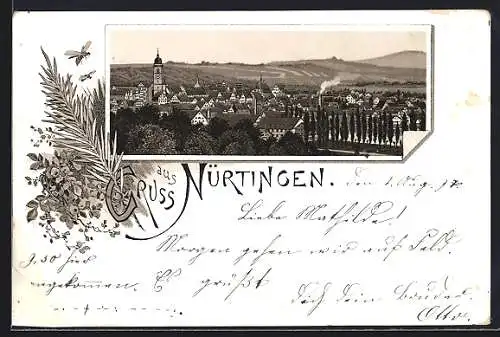 Gruss aus Nürtingen.
den 1. Aug. 97.
Liebe Mathilde!
Morgen gehen wir auf Feld.
9.50 hier
angekommen. Es grüßt
Dich Dein Bruder
Otto.